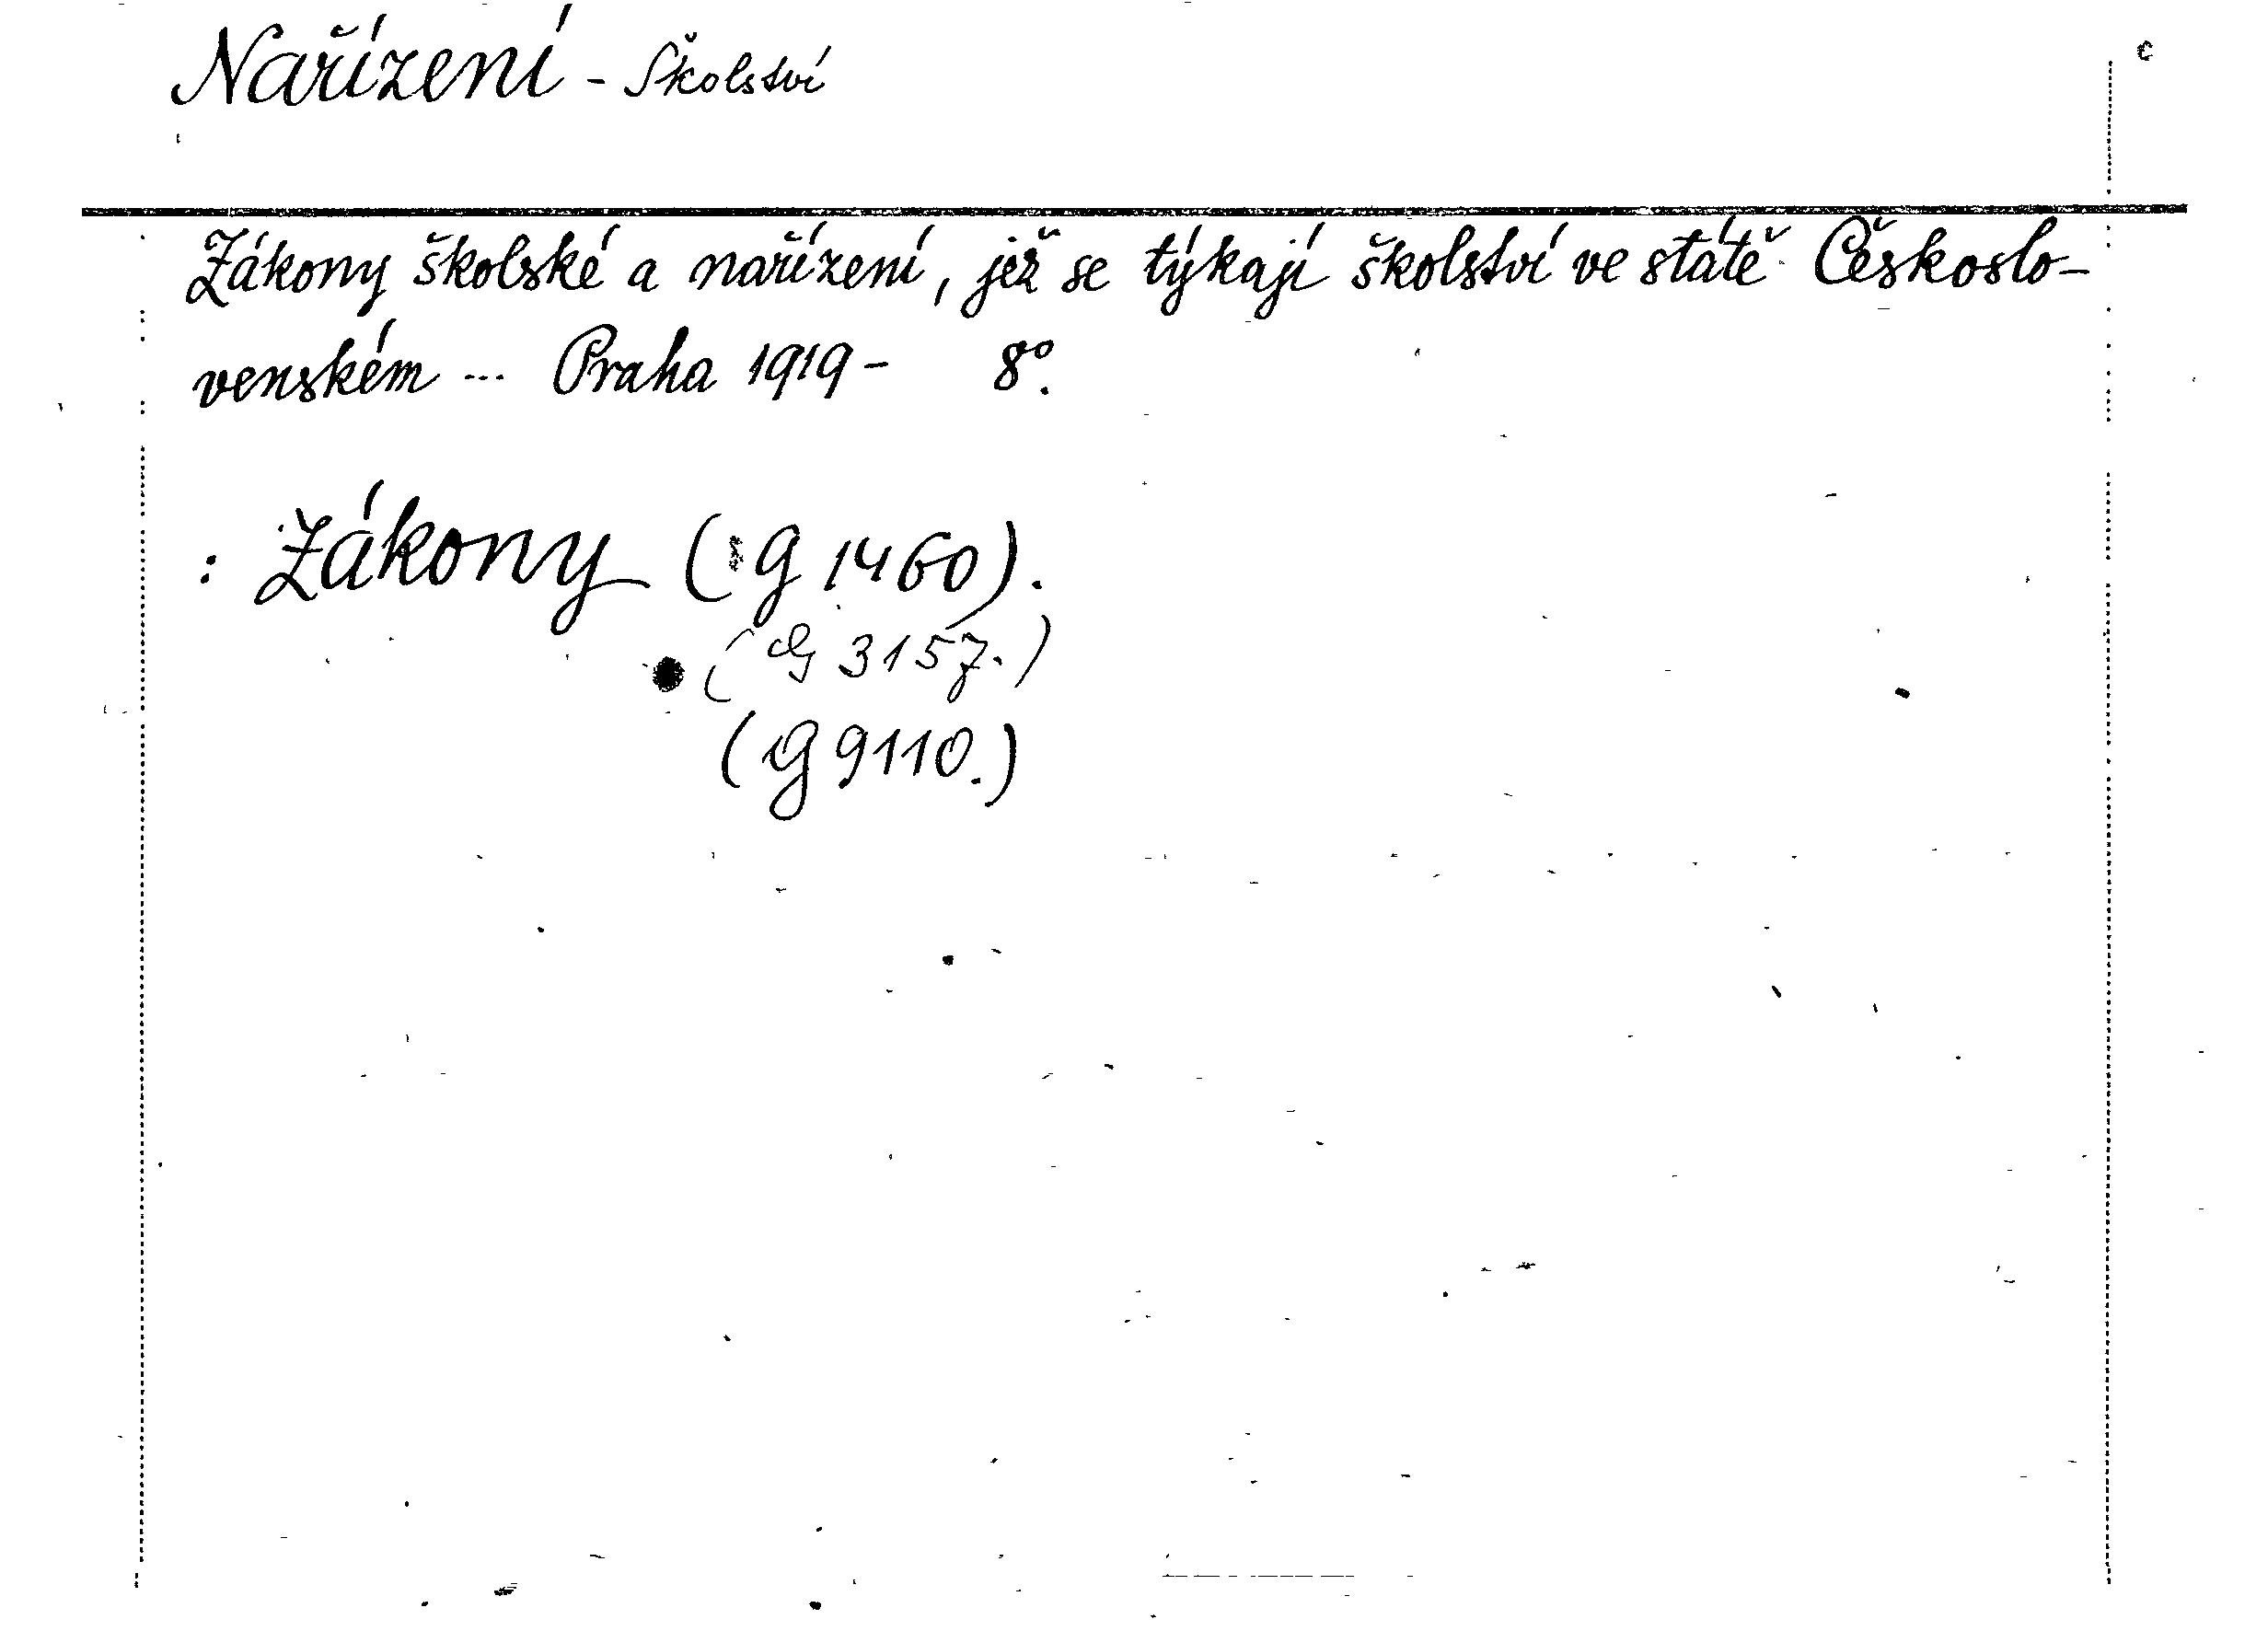 Nařízení - Školství
Zákony školské a nařízení, jež se týkají školství ve státě Českoslo-
venském ... Praha 1919 - 8°.
: Zákony (G 1460).
(G 3157.)
(G 9110.)